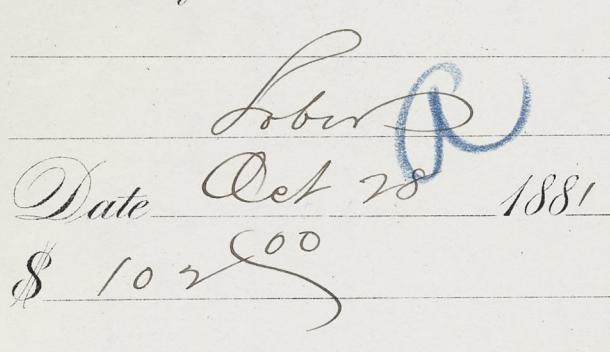 Sober
Date Oct 28 1881
$ 102 00